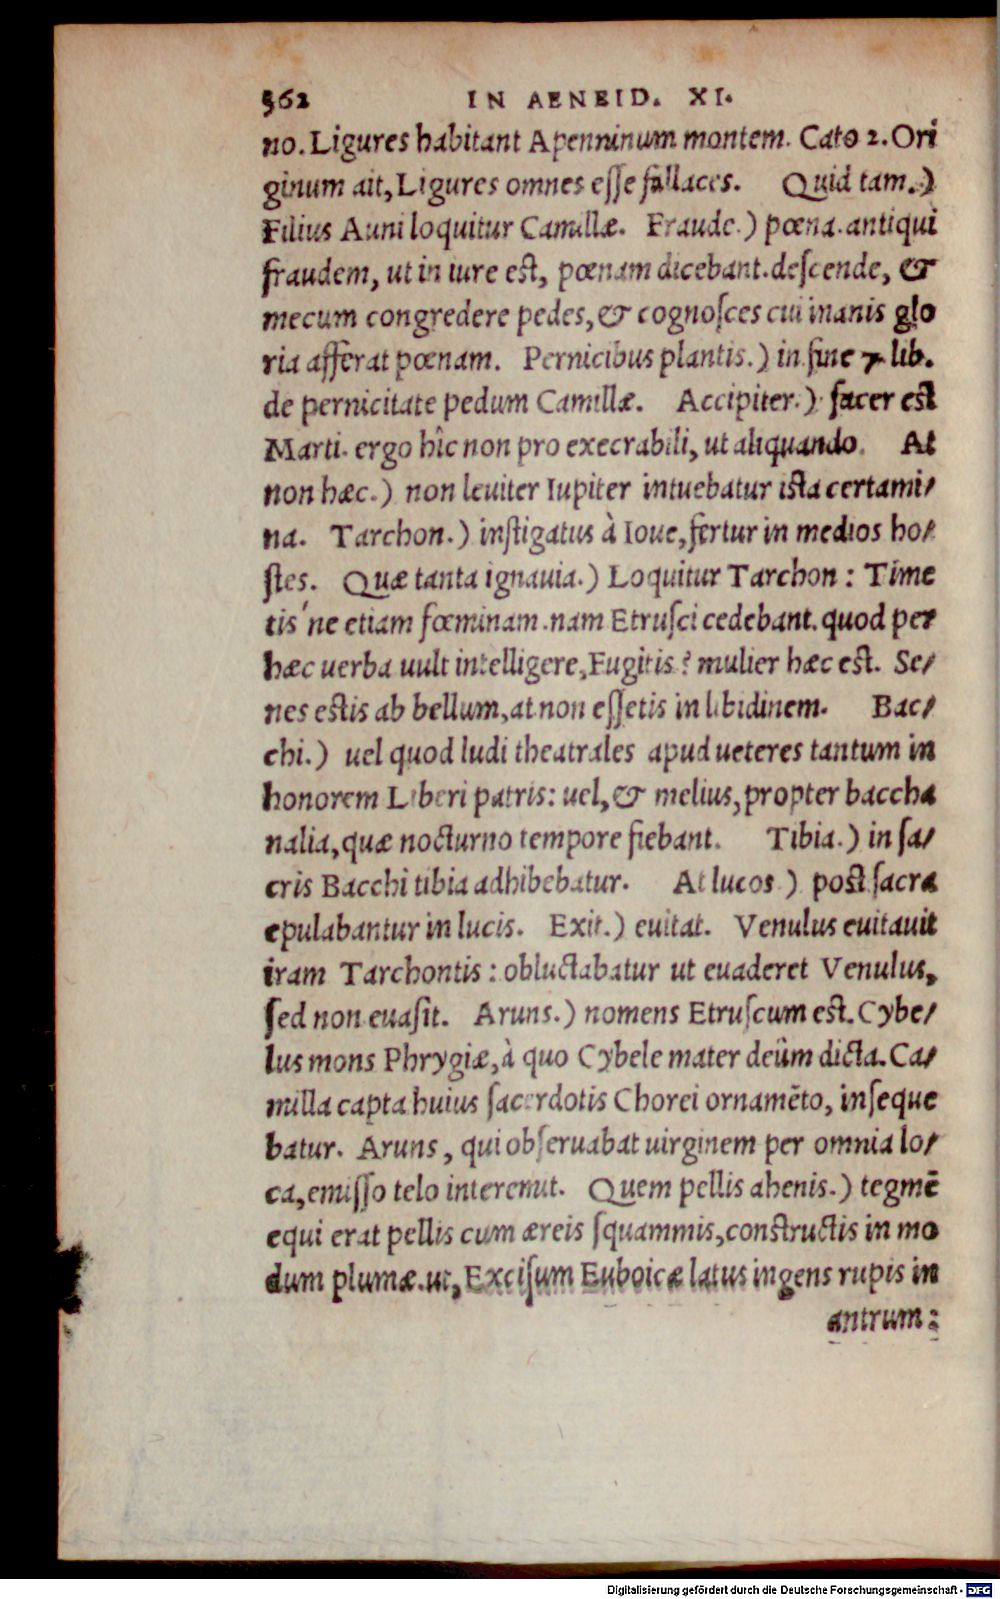 562 IN AENEID. XI.
no. Ligures habitant Apenninum montem. Cato 2. Ori
ginum ait, Ligures omnes esse fallaces. Quid tam.)
Filius Auni loquitur Camillæ. Fraude.) pœna. antiqui
fraudem, ut in iure est, pœnam dicebant. descende, &
mecum congredere pedes, & cognosces cui inanis glo
ria afferat pœnam. Pernicibus plantis.) in fine 7. lib.
de pernicitate pedum Camillæ. Accipiter.) sacer est
Marti. ergo hîc non pro execrabili, ut aliquando. At
non hæc.) non leuiter Iupiter intuebatur ista certami/
na. Tarchon.) instigatus à Ioue, fertur in medios ho/
stes. Quæ tanta ignauia.) Loquitur Tarchon: Time
tis'ne etiam fœminam. nam Etrusci cedebant. quod per
hæc uerba uult intelligere, Fugitis? mulier hæc est. Se/
nes estis ab bellum, at non essetis in libidinem. Bac/
chi.) uel quod ludi theatrales apud ueteres tantum in
honorem Liberi patris: uel, & melius, propter baccha
nalia, quæ nocturno tempore fiebant. Tibia.) in sa/
cris Bacchi tibia adhibebatur. At lucos) post sacra
epulabantur in lucis. Exit.) euitat. Venulus euitauit
iram Tarchontis: obluctabatur ut euaderet Venulus,
sed non euasit. Aruns.) nomens Etruscum est. Cybe/
lus mons Phrygiæ, à quo Cybele mater deûm dicta. Ca/
milla capta huius sacerdotis Chorei ornamēto, inseque
batur. Aruns, qui obseruabat uirginem per omnia lo/
ca, emisso telo interemit. Quem pellis ahenis.) tegmē
equi erat pellis cum æreis squammis, constructis in mo
dum plumæ. ut, Excisum Euboicæ latus ingens rupis in
antrum:
Digitalisierung gefördert durch die Deutsche Forschungsgemeinschaft - DFG